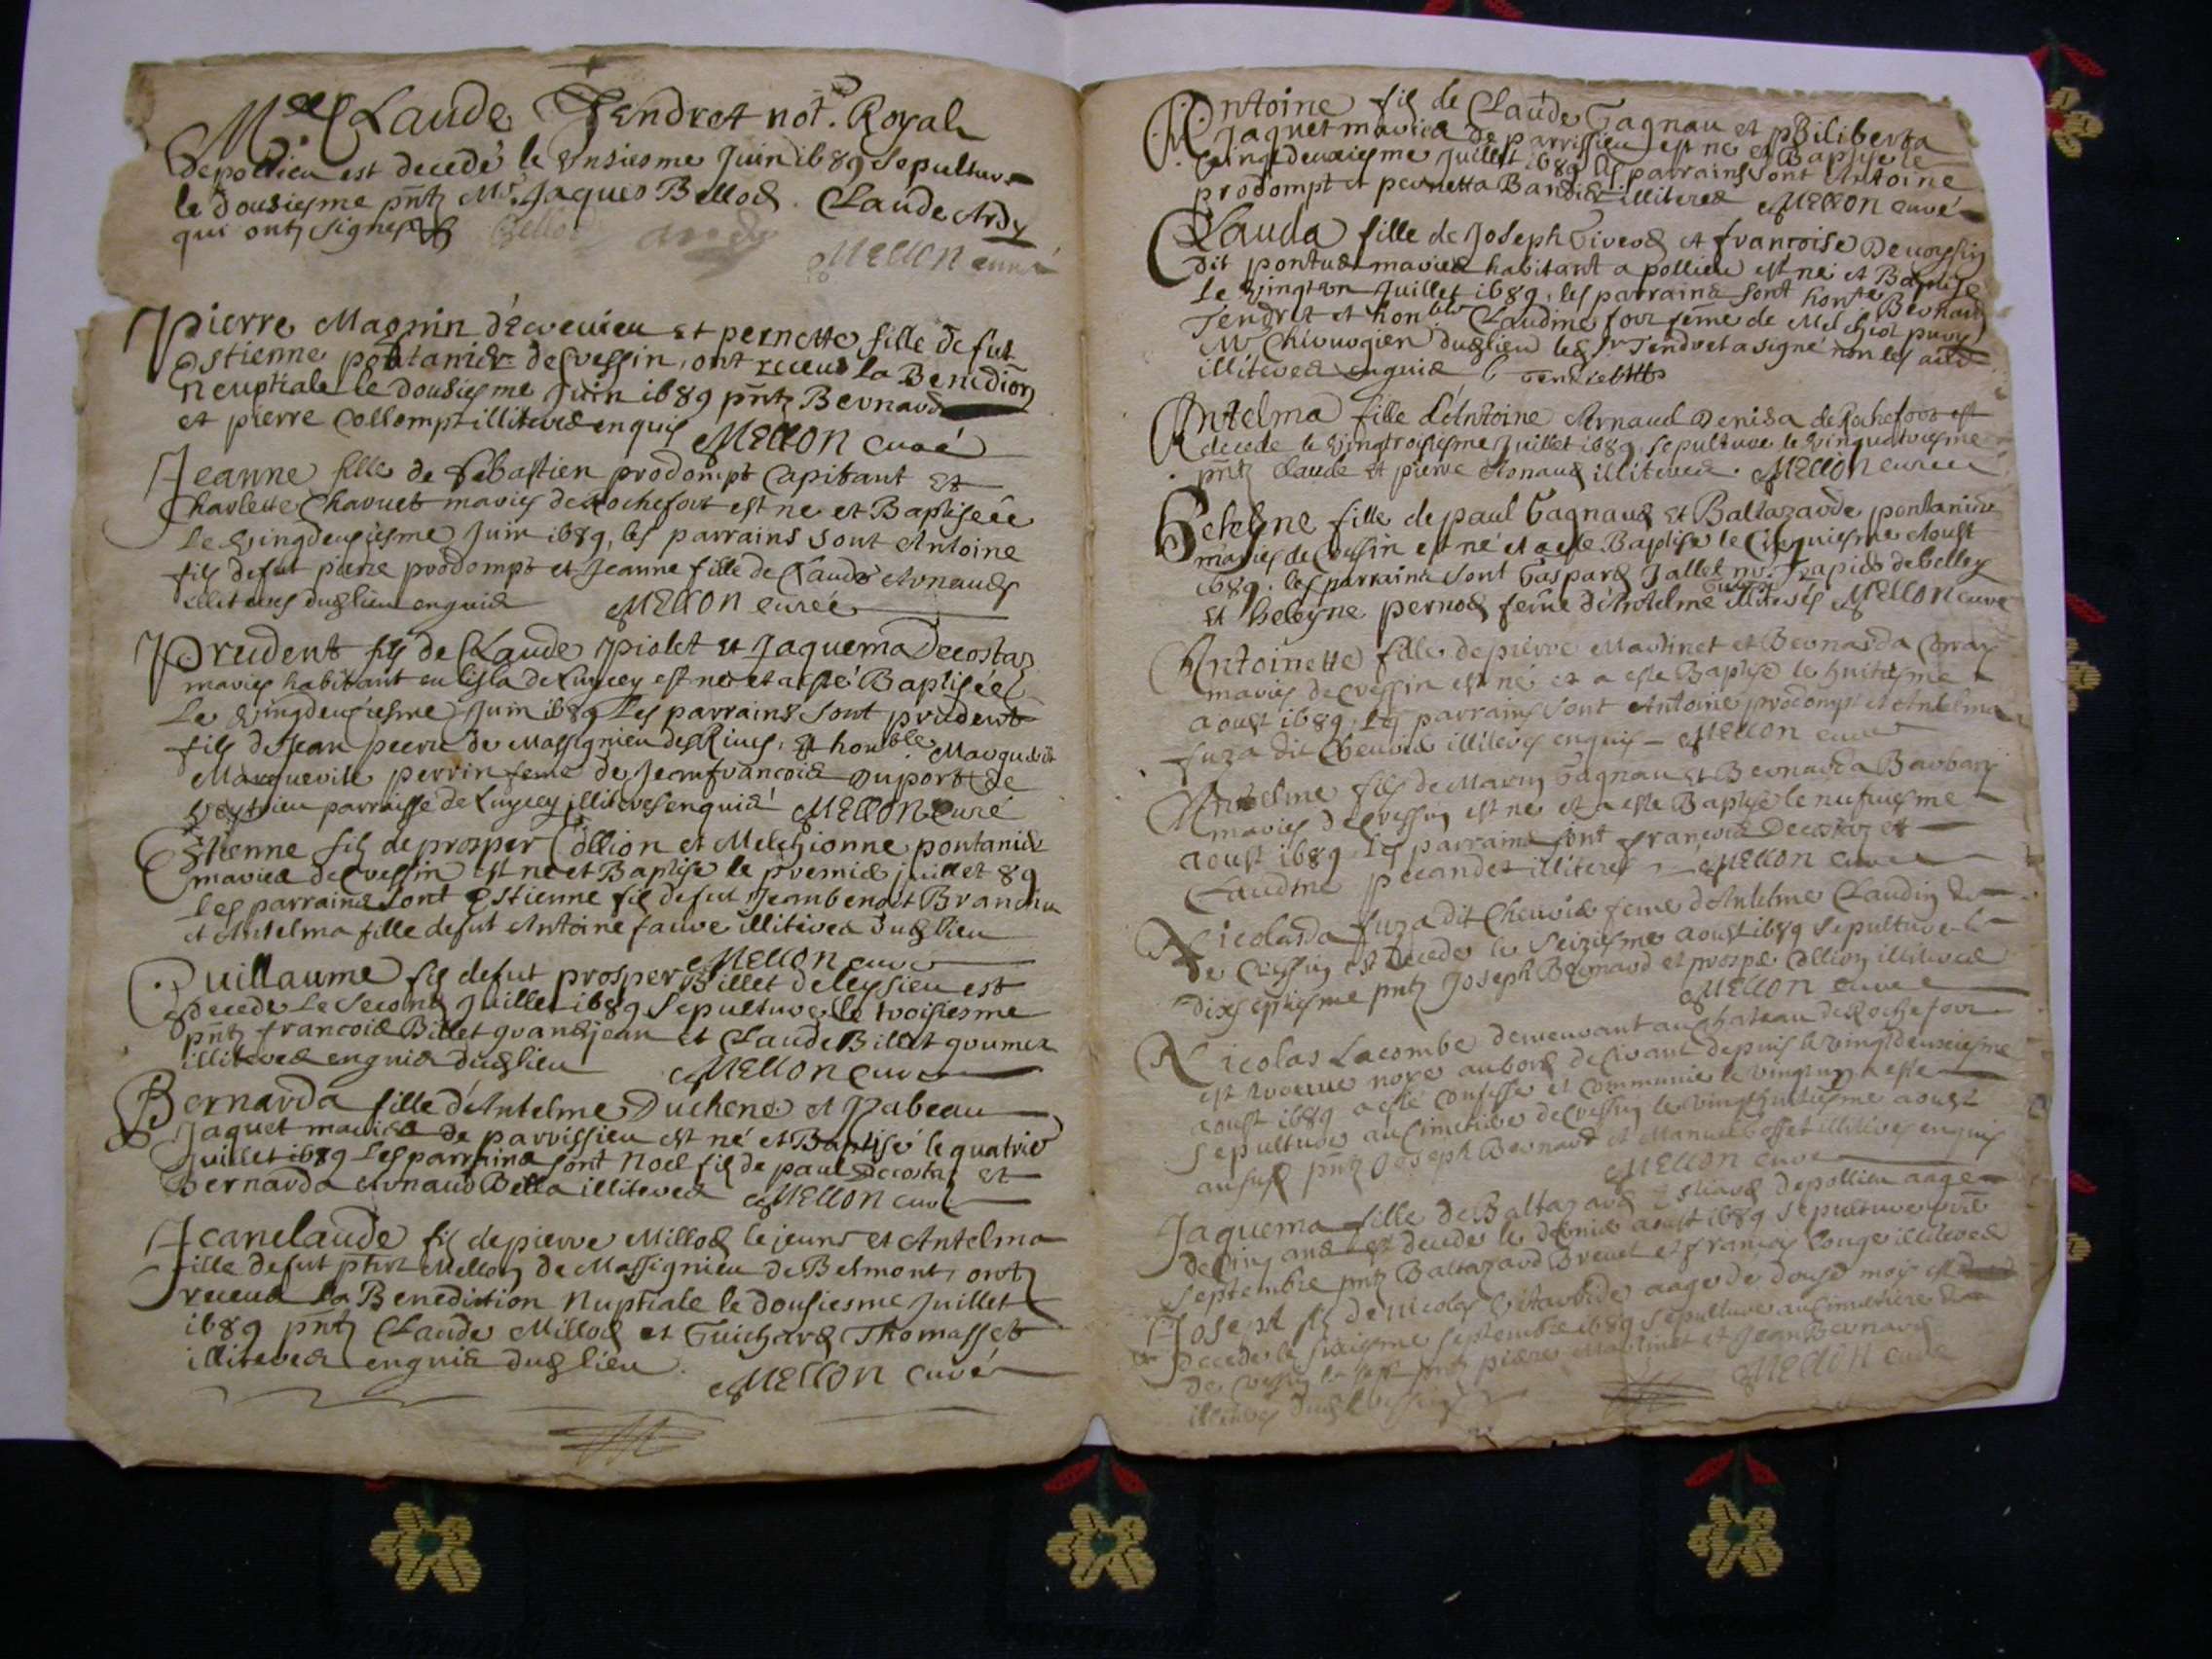 Mre Claude Tendret not. Royal
de pollieu est decedé le Unsiesme Juin 1689 Sepulture
le dousiesme pntz Mr. Jaques Bellod. Claude Ardy
qui ontz signes
Bellod ardy
MELLON curé
Pierre Magnin d'Ecrevieu et pernette fille de fut
Estienne pontanier de Cressin, ont receus la Benedion
neuptiale le dousiesme Juin 1689 pntz Bernard
et pierre Collomp illiteres enquis MELLON curé
Jeanne fille de Sebastien prodompt Capitant et
Charlette Charvet maries de Rochefort est ne et Baptiseée
Le Vingdeusiesme Juin 1689, les parrains sont Antoine
fils de fut pierre prodompt et Jeanne fille de Claude Arnaud
illiteres dudlieu enquis MELLON curée
Prudent fils de Claude piolet et Jaquema Decostaz
maries habitant en lisla de Luycey est ne et a esté Baptiséel
Le Vingdeusiesme Juin 1689 Les parrains sont prudent
fils de Jean de Massignieu des Rives, et honble
Marguerite perrin feme de Jeanfrancois Duport de
parroisse de Luycey illiteres enquis MELLON Curé
Estienne fils de prosper Collion et Melchionne pontanier
maries de Cressin est ne et Baptise le premier juillet 89
les parrains sont Estienne fils de fut Jeanbenoit
et Antelma fille de fut Antoine faure illiteres dudlieu
MELLON curé
Guillaume fils de fut prosper Billet de leysieu est
decede Le Second Juillet 1689 Sepulture le troisiesme
pntz francois Billet grandjean et Claude Billet
illiteres enquis dudlieu MELLON curé
Bernarda fille d'Antelme Duchene et Jzabeau
Jaquet maries de parvissieu est né et Baptisé le quatrie
Juillet 1689 Les parrains sont Noel fils de paul Decostaz et
Bernarda Arnaud Bella illiteres MELLON curé
Jeanclaude fils de pierre Millod le jeune et Antelma
fille de fut Mellon de Massignieu de Belmont, ont
receus La Benediction Nuptiale le dousiesme Juillet
1689 pntz Claude Millod et Guichard Thomasset
illiteres enquis dudlieu. MELLON curé
Antoine fils de Claude Gagnau et philiberta
Jaquet maries de parvissieu est ne et Baptise le
Vingtdeuxiesme Juillet 1689 les parrains sont Antoine
prodompt et pernetta illiteres MELLON curé
Clauda fille de Joseph et francoise
dit pontus maries habitant a pollieu est ne et Baptise
Le Vingtun Juillet 1689, les parrains sont honble Bernard
Tendret et honble Claudine feme de Melchiol
Mr Chirurgien dudlieu led Sr Tendret a signé non les
illiteres enquis Tendret
Antelma fille d'Antoine Arnaud Denisa de Rochefort est
decede le Vingtroisiesme Juillet 1689, sepulture le Vingquatriesme
pntz Claude et pierre illiteres. MELLON curée
Heleyne fille de paul Gagnaud et Baltazarde pontanier
maries de Cressin est né et a este Baptise le Cinquiesme Aoust
1689. les parrains sont Gaspard Jallet de belley
et heleyne pernod feme d'Antelme illiteres MELLON curé
Antoinette fille de pierre Martinet et Bernarda
maries de Cressin est né et a este Baptise le huitiesme
aoust 1689. les parrains sont Antoine prodompt et Antelma
fuza dit Chevrier illiteres enquis MELLON curé
Antelme fils de Marin Gagnau et Bernarda Barbary
maries de Cressin est ne et a este Baptise le nufviesme
aoust 1689 Les parrains sont francois Decostaz et
Claudine illiteres MELLON curé
Nicolarda fuza dit Chevrier feme d'Antelme Claudin
de Cressin est decede le Seiziesme aoust 1689 sepulture le
dixseptiesme pntz Joseph Bernard et prosper Collion illiteres
MELLON curé
Nicolas Lacombe demeurant au Chateau de Rochefort
est trouve noye au bord de depuis le vingtdeuxiesme
aoust 1689 a esté confesse et communie le vingtun a este
sepulture au cimetiere de Cressin le vingthuitiesme aoust
pntz Joseph Bernard et illiteres enquis
MELLON curé
Jaquema fille de Baltazard de pollieu aage
de cinq ans est decede le dernier aoust 1689 sepulture
septembre pntz Baltazard et francois illiteres
Joseph fils de nicolas aage de douze mois est
decede le sixiesme septembre 1689 sepulture au cimetiere
de Cressin le pntz pierre Martinet et Jean Bernard
illiteres MELLON curé